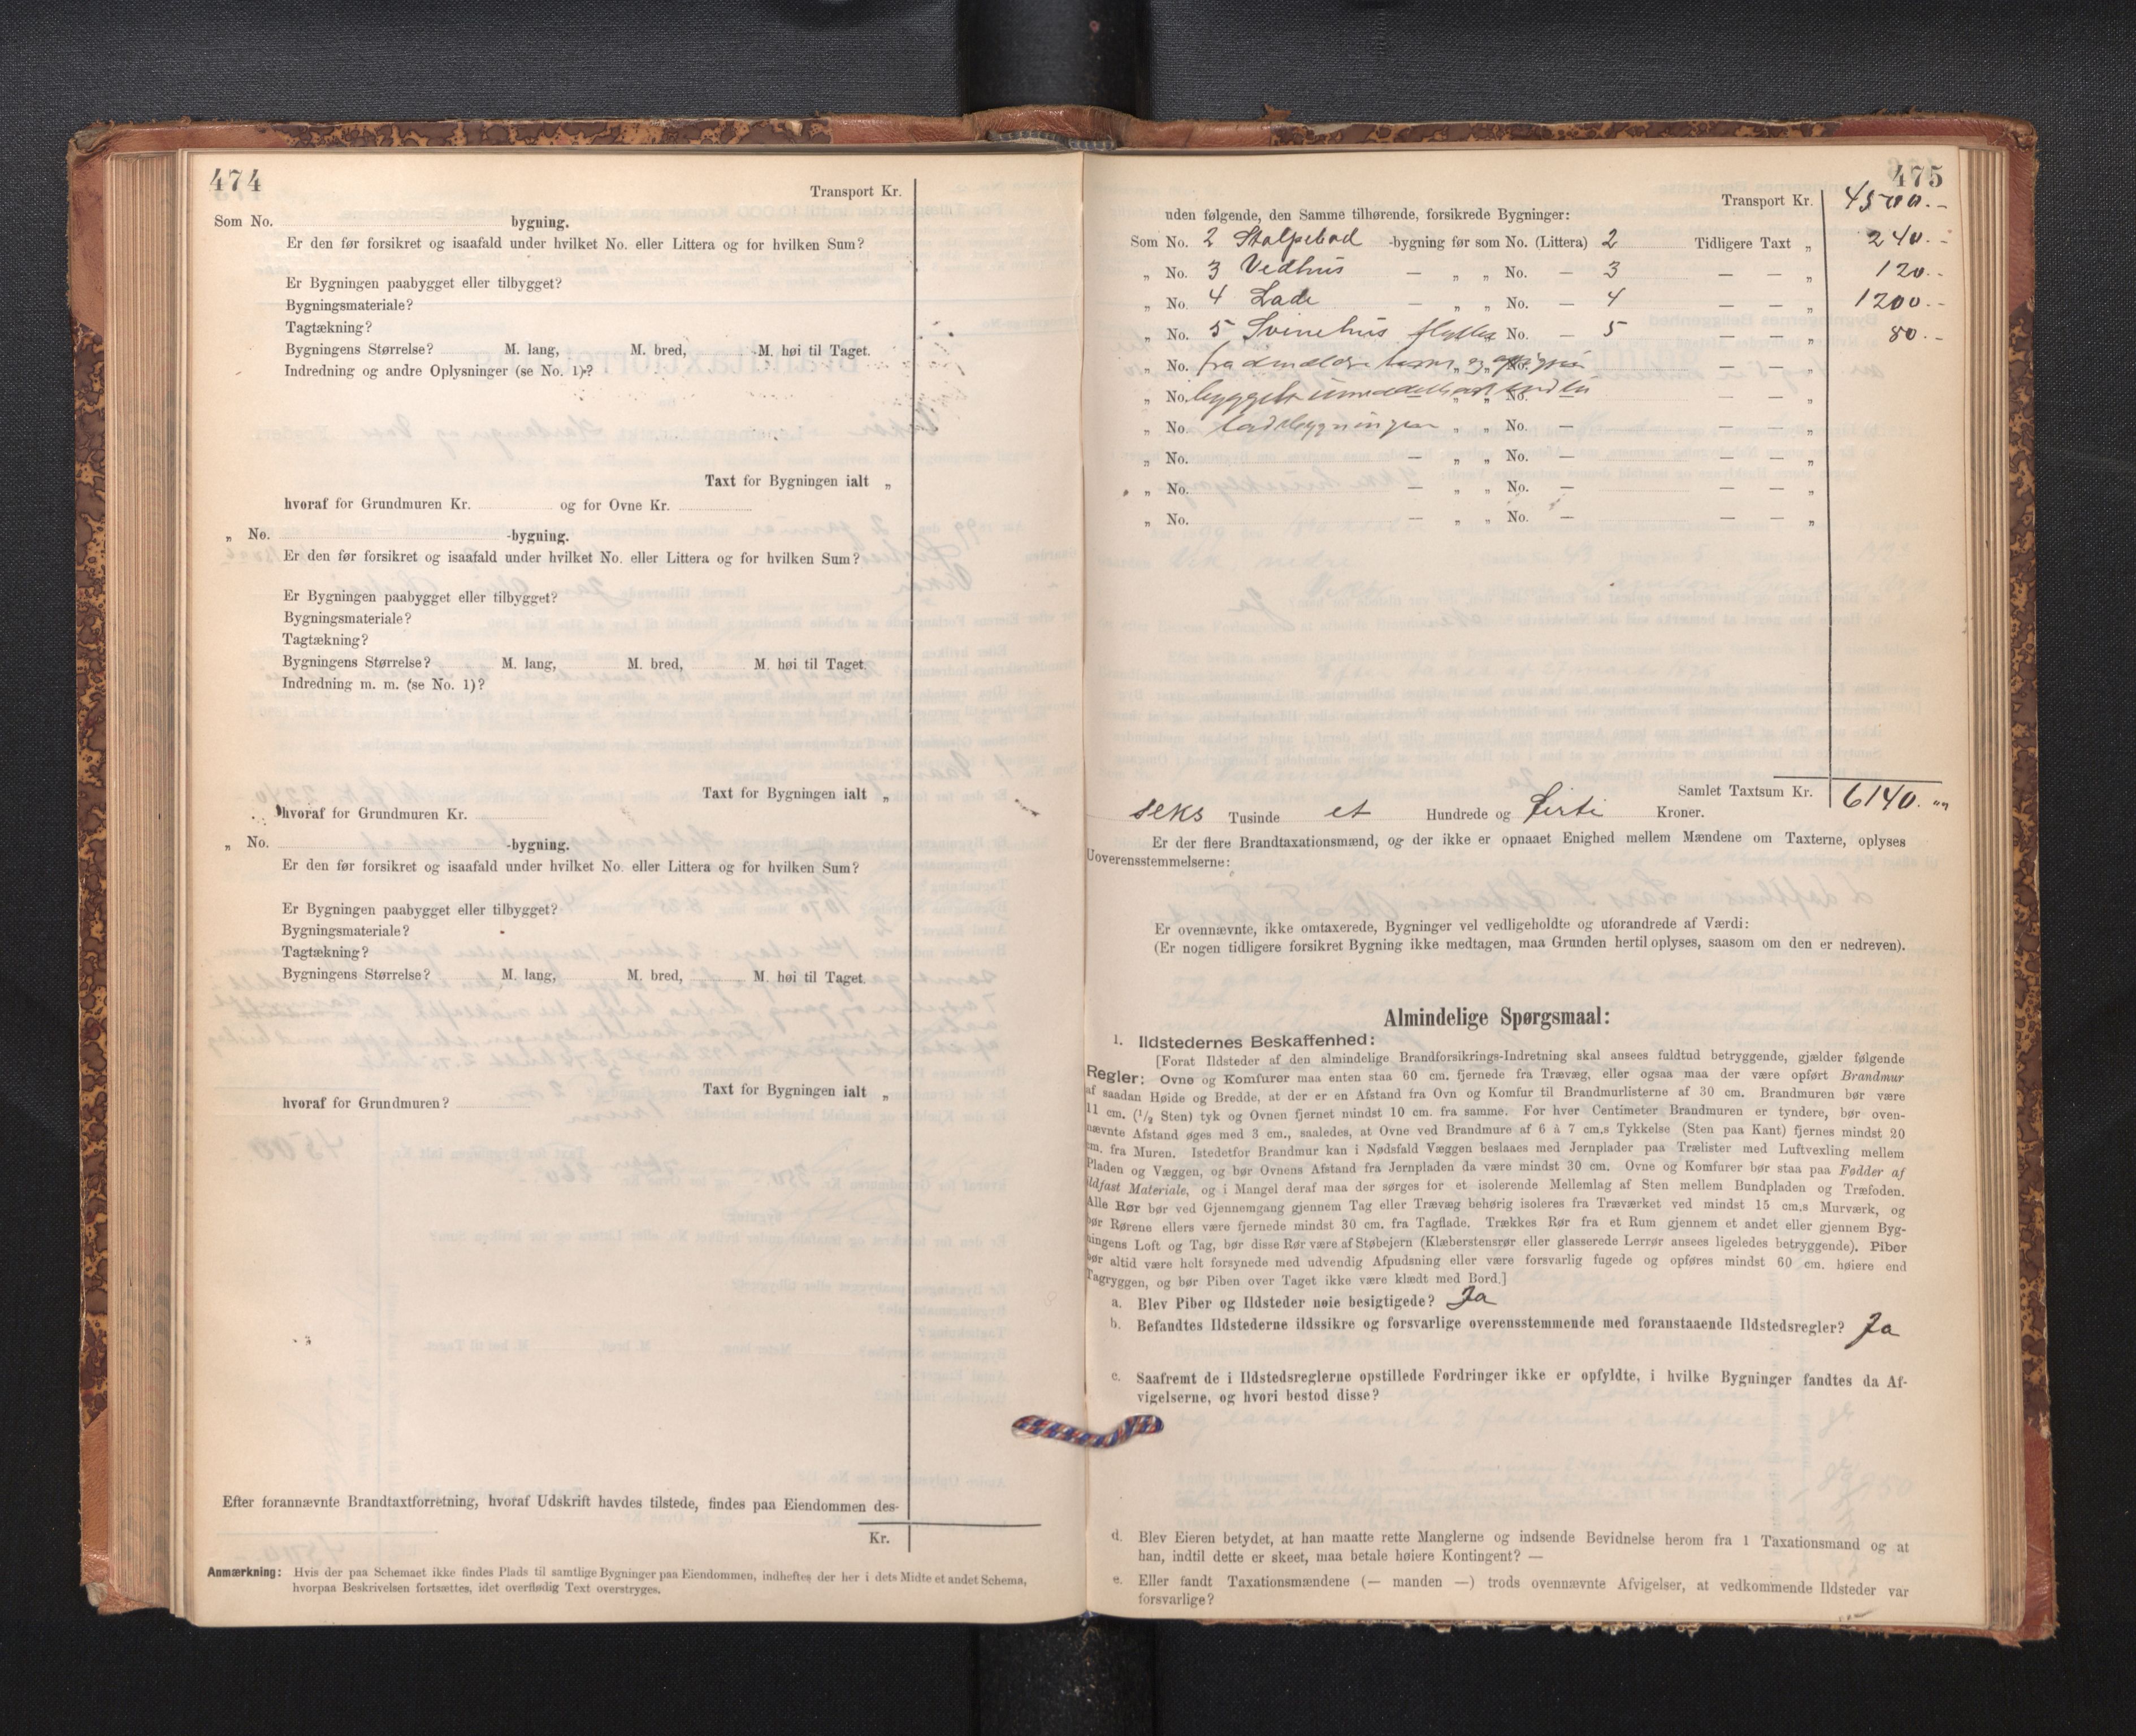 474
Transport Kr.
Som No. bygning.
Er den før forsikret og isaafald under hvilket No. eller Littera og for hvilken Sum?
Er Bygningen paabygget eller tilbygget?
Bygningsmateriale?
Tagtækning?
Bygningens Størrelse? M. lang, M. bred, M. høi til Taget.
Indredning og andre Oplysninger (se No. 1)?
Taxt for Bygningen ialt „
hvoraf for Grundmuren Kr. og for Ovne Kr.
„ No. -bygning.
Er den før forsikret og isaafald under hvilket No. eller Littera og for hvilken Sum?
Er Bygningen paabygget eller tilbygget?
Bygningsmateriale?
Tagtækning?
Bygningens Størrelse? M. lang, M. bred, M. høi til Taget.
Indredning m. m. (se No. 1)?
Taxt for Bygningen ialt „
hvoraf for Grundmuren Kr.
„ No. -bygning.
Er den før forsikret og isaafald under hvilket No. eller Littera og for hvilken Sum?
Er Bygningen paabygget eller tilbygget?
Bygningsmateriale?
Tagtækning?
Bygningens Størrelse? M. lang, M. bred, M. høi til Taget.
Taxt for Bygningen ialt „
hvoraf for Grundmuren?
Efter forannævnte Brandtaxtforretning, hvoraf Udskrift havdes tilstede, findes paa Eiendommen des-
Kr.
Anmærkning: Hvis der paa Schemaet ikke findes Plads til samtlige Bygninger paa Eiendommen, indheftes der her i dets Midte et andet Schema,
hvorpaa Beskrivelsen fortsættes, idet overflødig Text overstryges.
475
Transport Kr. 4500.-
uden følgende, den Samme tilhørende, forsikrede Bygninger:
Som No. 2 Stolpebod -bygning før som No. (Littera) 2 Tidligere Taxt „ 240.-
„ No. 3 Vedhus — „ „ No. — 3 — — „ 120.-
„ No. 4 Lade — „ „ No. — 4 — — „ 1200.-
„ No. 5 Svinehus flyttet No. — 5 — — „ 80.-
„ No. fra „ og „ No. — — — „
„ No. bygget — „ „ No. — — — „
„ No. ladebygningen „ „ No. — — — „
„ No. — „ „ No. — — — „
„ No. — „ „ No. — — — „
„ No. — „ „ No. — — — „
Samlet Taxtsum Kr. 6140. „„
seks Tusinde et Hundrede og firti Kroner.
Er der flere Brandtaxationsmænd, og der ikke er opnaaet Enighed mellem Mændene om Taxterne, oplyses
Uoverensstemmelserne:
Er ovennævnte, ikke omtaxerede, Bygninger vel vedligeholdte og uforandrede af Værdi:
(Er nogen tidligere forsikret Bygning ikke medtagen, maa Grunden hertil oplyses, saasom om den er nedreven).
Almindelige Spørgsmaal:
1. Ildstedernes Beskaffenhed:
[Forat Ildsteder af den almindelige Brandforsikrings-Indretning skal ansees fuldtud betryggende, gjælder følgende
Regler: Ovne og Komfurer maa enten staa 60 cm. fjernede fra Trævæg, eller ogsaa maa der være opført Brandmur
af saadan Høide og Bredde, at der er en Afstand fra Ovn og Komfur til Brandmurlisterne af 30 cm. Brandmuren bør være
11 cm. (1/2 Sten) tyk og Ovnen fjernet mindst 10 cm. fra samme. For hver Centimeter Brandmuren er tyndere, bør oven-
nævnte Afstand øges med 3 cm., saaledes, at Ovne ved Brandmure af 6 à 7 cm.s Tykkelse (Sten paa Kant) fjernes mindst 20
cm. fra Muren. Istedetfor Brandmur kan i Nødsfald Væggen beslaaes med Jernplader paa Trælister med Luftvexling mellem
Pladen og Væggen, og bør Ovnens Afstand fra Jernpladen da være mindst 30 cm. Ovne og Komfurer bør staa paa Fødder af
ildfast Materiale, og i Mangel deraf maa der sørges for et isolerende Mellemlag af Sten mellem Bundpladen og Træfoden.
Alle Rør bør ved Gjennemgang gjennem Tag eller Trævæg behørig isoleres fra Træværket ved mindst 15 cm.s Murværk, og
bør Rørene ellers være fjernede mindst 30 cm. fra Tagflade. Trækkes Rør fra et Rum gjennem et andet eller gjennem Byg-
ningens Loft og Tag, bør disse Rør være af Støbejern (Klæberstensrør eller glasserede Lerrør ansees ligeledes betryggende). Piber
bør altid være helt forsynede med udvendig Afpudsning eller være forsvarlig fugede og opføres mindst 60 cm. høiere end
Tagryggen, og bør Piben over Taget ikke være klædt med Bord.]
a. Blev Piber og Ildsteder nøie besigtigede? Ja
b. Befandtes Ildstederne ildssikre og forsvarlige overensstemmende med foranstaaende Ildstedsregler? Ja
c. Saafremt de i Ildstedsreglerne opstillede Fordringer ikke er opfyldte, i hvilke Bygninger fandtes da Af-
vigelserne, og hvori bestod disse?
d. Blev Eieren betydet, at han maatte rette Manglerne og indsende Bevidnelse herom fra 1 Taxationsmand og at
han, indtil dette er skeet, maa betale høiere Kontingent? —
e. Eller fandt Taxationsmændene (— manden —) trods ovennævnte Afvigelser, at vedkommende Ildsteder var
forsvarlige?